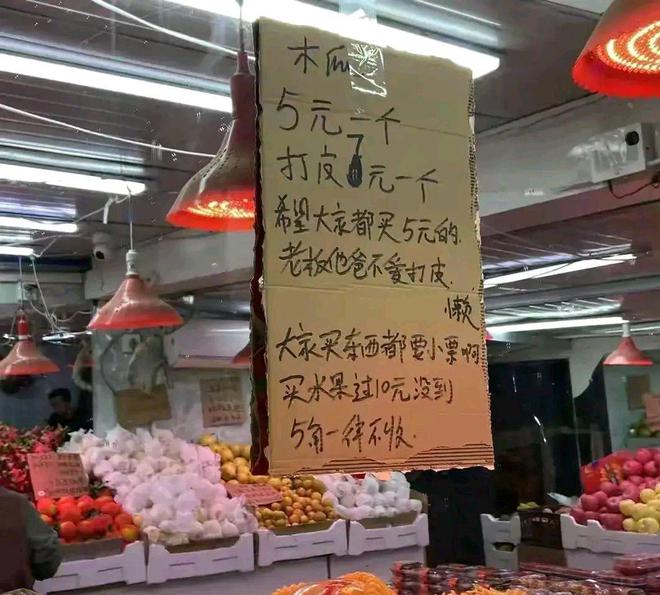 木瓜
5元一个
打皮7元一个
希望大家都买5元的.
老板他爸不爱打皮.
懒
大家买东西都要小票啊
买水果过10元没到
5角一律不收.